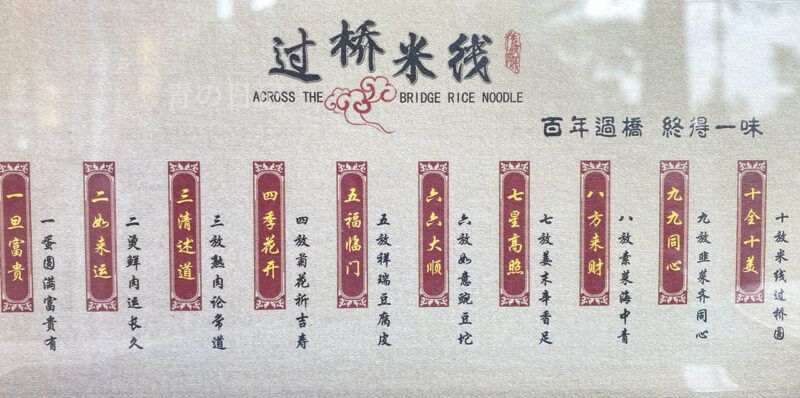 过桥米线
ACROSS THE BRIDGE RICE NOODLE
百年過橋 終得一味
一旦富贵
一蛋圆满富贵有
二如来运
二烫鲜肉运长久
三清述道
三放熟肉论常道
四季花开
四放菊花祈吉寿
五福临门
五放祥瑞豆腐皮
六六大顺
六放如意豌豆坨
七星高照
七放姜末辛香足
八方来财
八放素菜海中青
九九同心
九放韭菜齐同心
十全十美
十放米线过桥圆